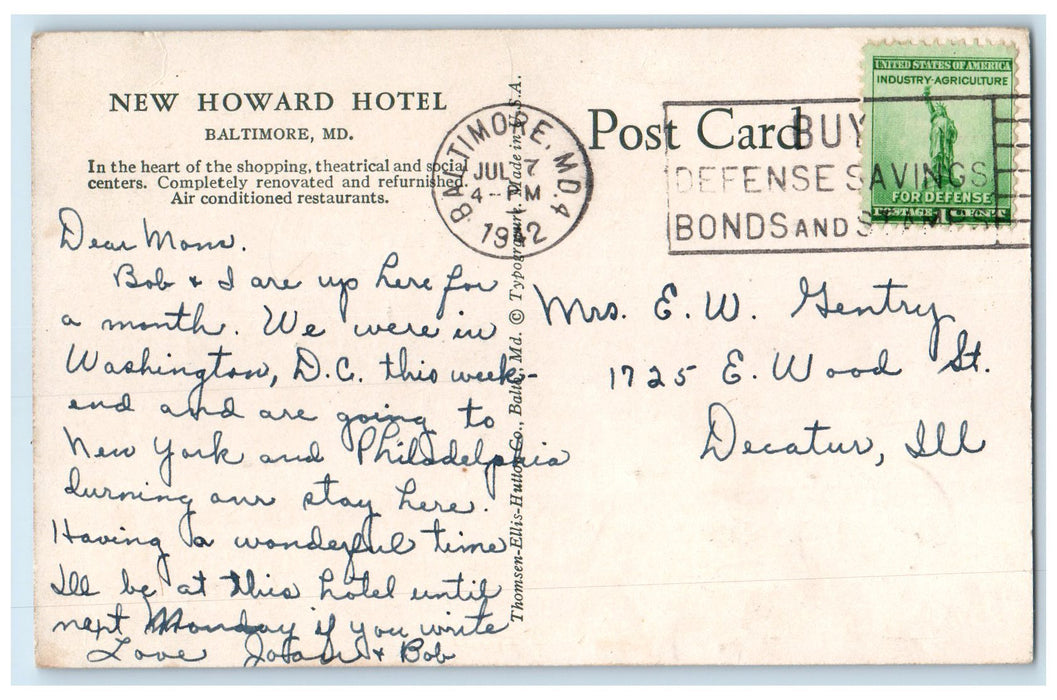 NEW HOWARD HOTEL
BALTIMORE, MD.
In the heart of the shopping, theatrical and social
centers. Completely renovated and refurnished.
Air conditioned restaurants.
Dear Mom.
Bob & I are up here for
a month. We were in
Washington, D.C. this week-
end and are going to
New York and Philadelphia
durning our stay here.
Having a wonderful time
Ill be at this hotel until
next Monday if you write
Love & Bob
Thomsen-Ellis-Hutton Co., Balto., Md. © Typogravure, Made in U.S.A.
BALTIMORE, MD. 4
JUL 7
4-PM
1942
Post Card
BUY
DEFENSE SAVINGS
BONDS AND STAMPS
UNITED STATES OF AMERICA
INDUSTRY-AGRICULTURE
FOR DEFENSE
POSTAGE 1 CENT
Mrs. E. W. Gentry
1725 E. Wood St.
Decatur, Ill